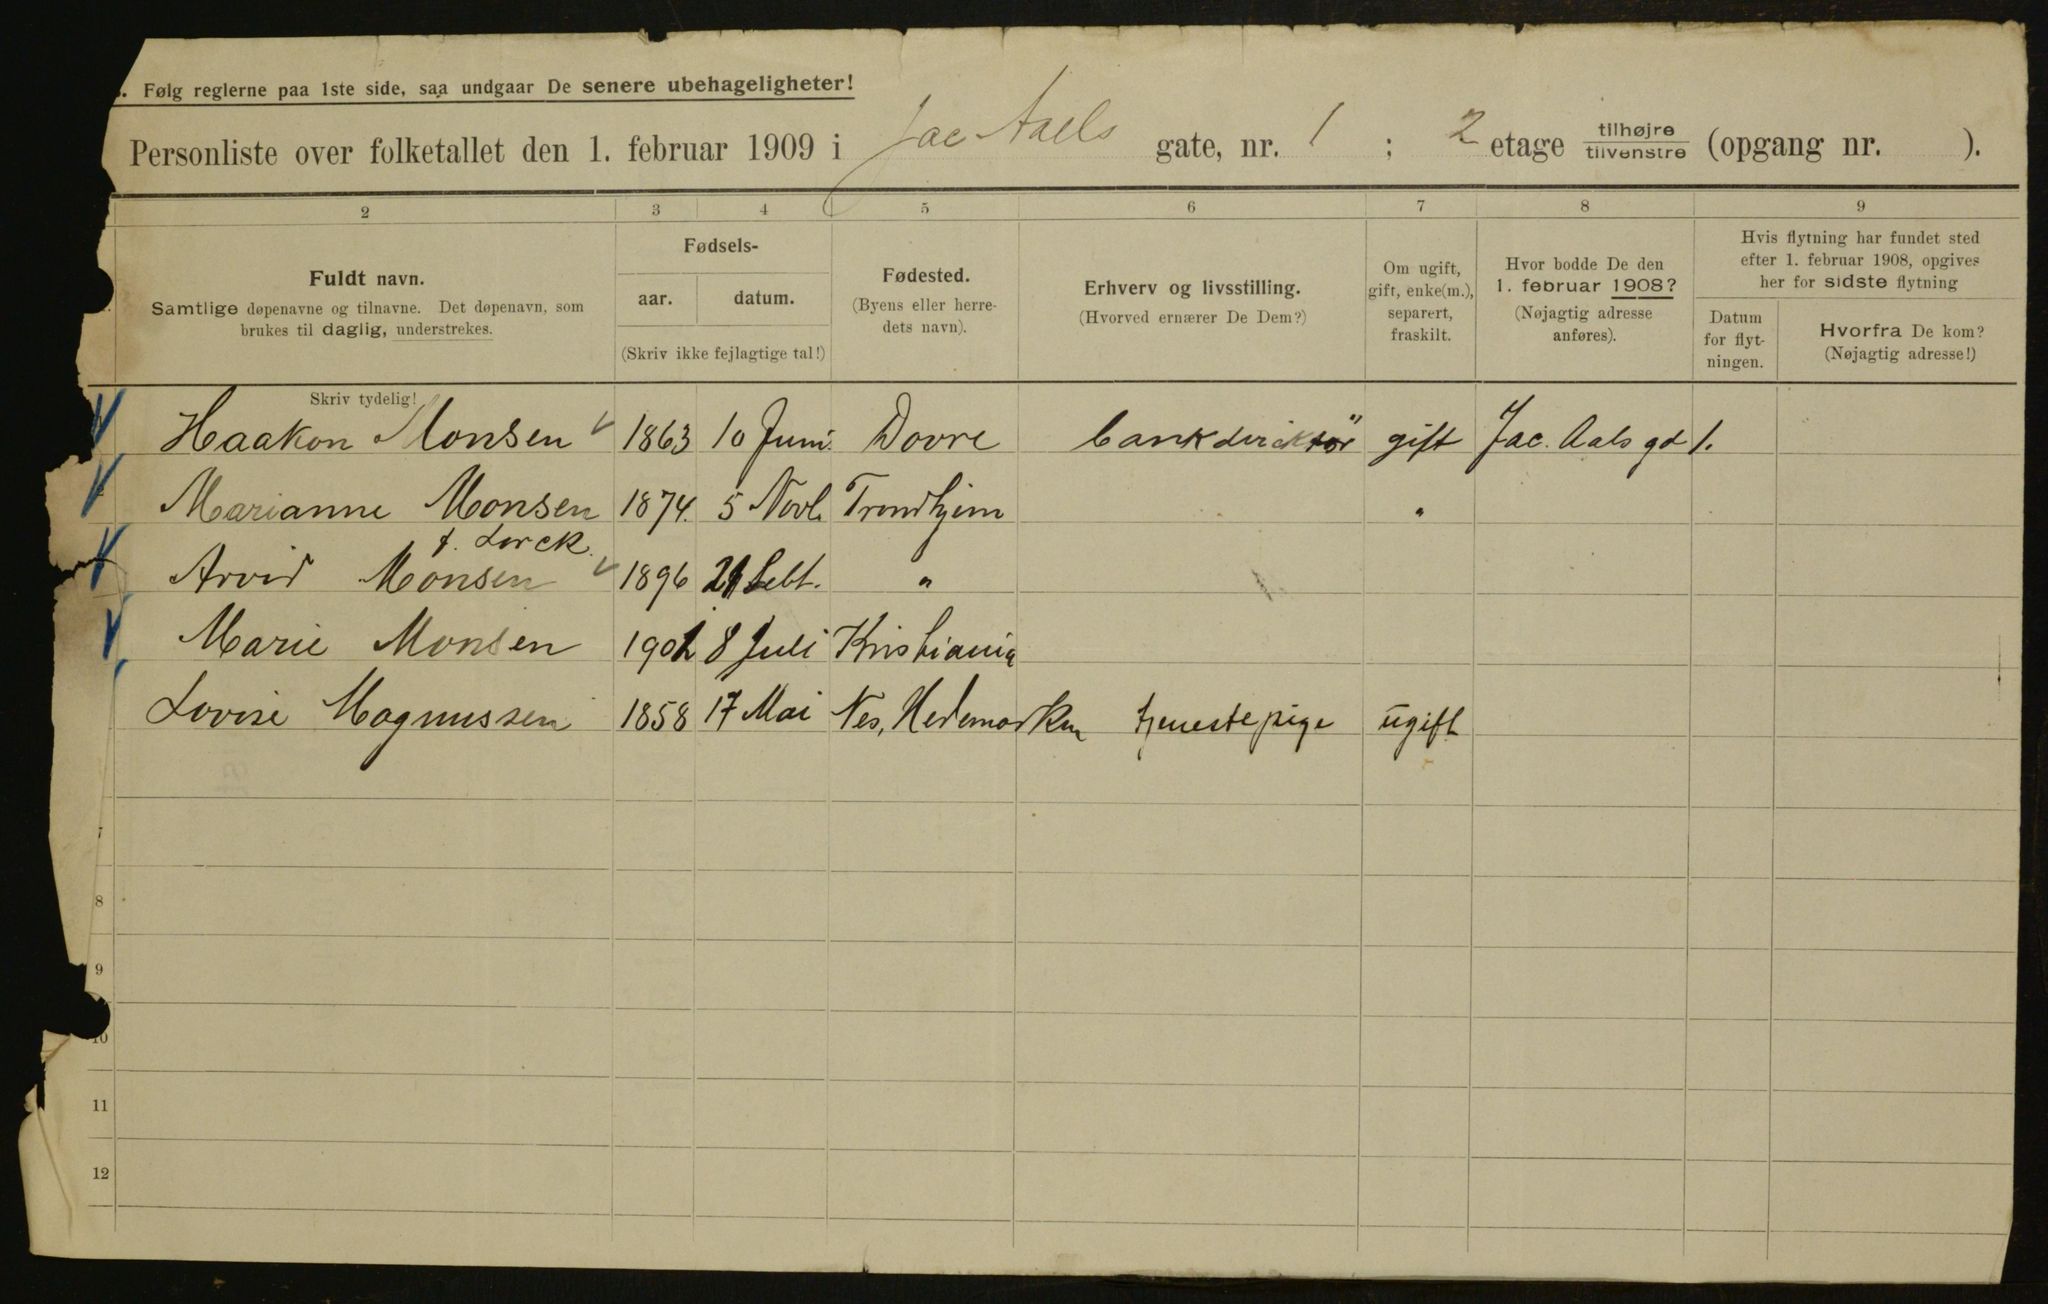 . Følg reglerne paa 1ste side, saa undgaar De senere ubehageligheter!
Personliste over folketallet den 1. februar 1909 i Jac Aaels gate, nr. 1 ; 2 etage tilhøjre/tilvenstre (opgang nr. ).
2 3 4 5 6 7 8 9
Fuldt navn.
Samtlige døpenavne og tilnavne. Det døpenavn, som
brukes til daglig, understrekes.
Skriv tydelig!
Fødsels-
aar. datum.
(Skriv ikke fejlagtige tal!)
Fødested.
(Byens eller herre-
dets navn).
Erhverv og livsstilling.
(Hvorved ernærer De Dem?)
Om ugift,
gift, enke(m.),
separert,
fraskilt.
Hvor bodde De den
1. februar 1908?
(Nøjagtig adresse
anføres).
Hvis flytning har fundet sted
efter 1. februar 1908, opgives
her for sidste flytning
Datum
for flyt-
ningen.
Hvorfra De kom?
(Nøjagtig adresse!)
Haakon Monsen 1863 10 Juni Dovre bankdirektör gift Jac. Aals gd 1.
Marianne Monsen 1874. 5 Novb. Trondhjem "
f. Lorck.
Arvid Monsen 1896 Sebt. "
Marie Monsen 8 Juli Kristiania
Lovise Magnussen 1858 17 Mai Nes, Hedemarken tjenestepige ugift
7
8
9
10
11
12